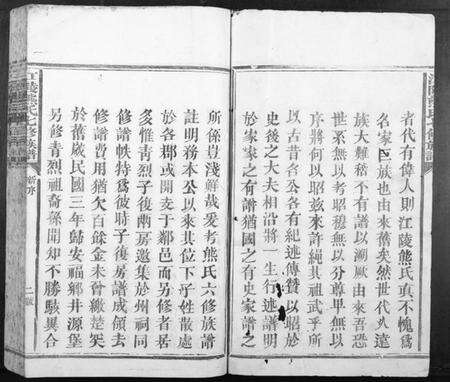 江陵熊氏七修族譜
者代有偉人則江陵熊氏真不愧爲
名家巨族也由來舊矣然世代久遠
族大難稽不有譜以溯厥由來吾恐
世系無以考昭穆無以分尊卑無以
序將何以昭玆來許繩其祖武乎所
以古昔各公各有紀述傳贊以昭於
史後之大夫相沿將一生行述譜明
於家家之有譜猶國之有史家譜之
所係豈淺鮮哉爰考熊氏六修族譜
註明務本公以來其位下子姓散處
於各郡或開支于鄰邑而另修者居
多惟青烈子後兩房邀集於州祠同
修譜帙持爲彼時子後房譜成領去
修譜費用猶欠百餘金未曾繳楚矣
於舊歲民國三年歸安福鄉井源堡
另修青烈祖裔孫開知不勝駭異合
江陵熊氏七修族譜
新序
二